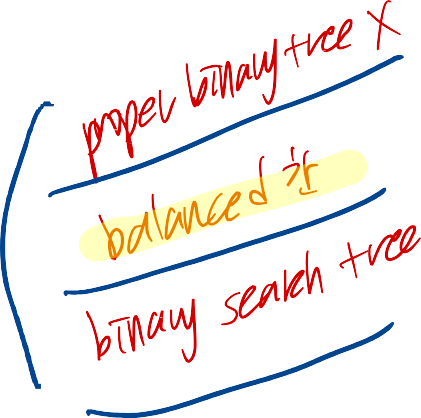 proper binary tree X
balanced 한
binary search tree